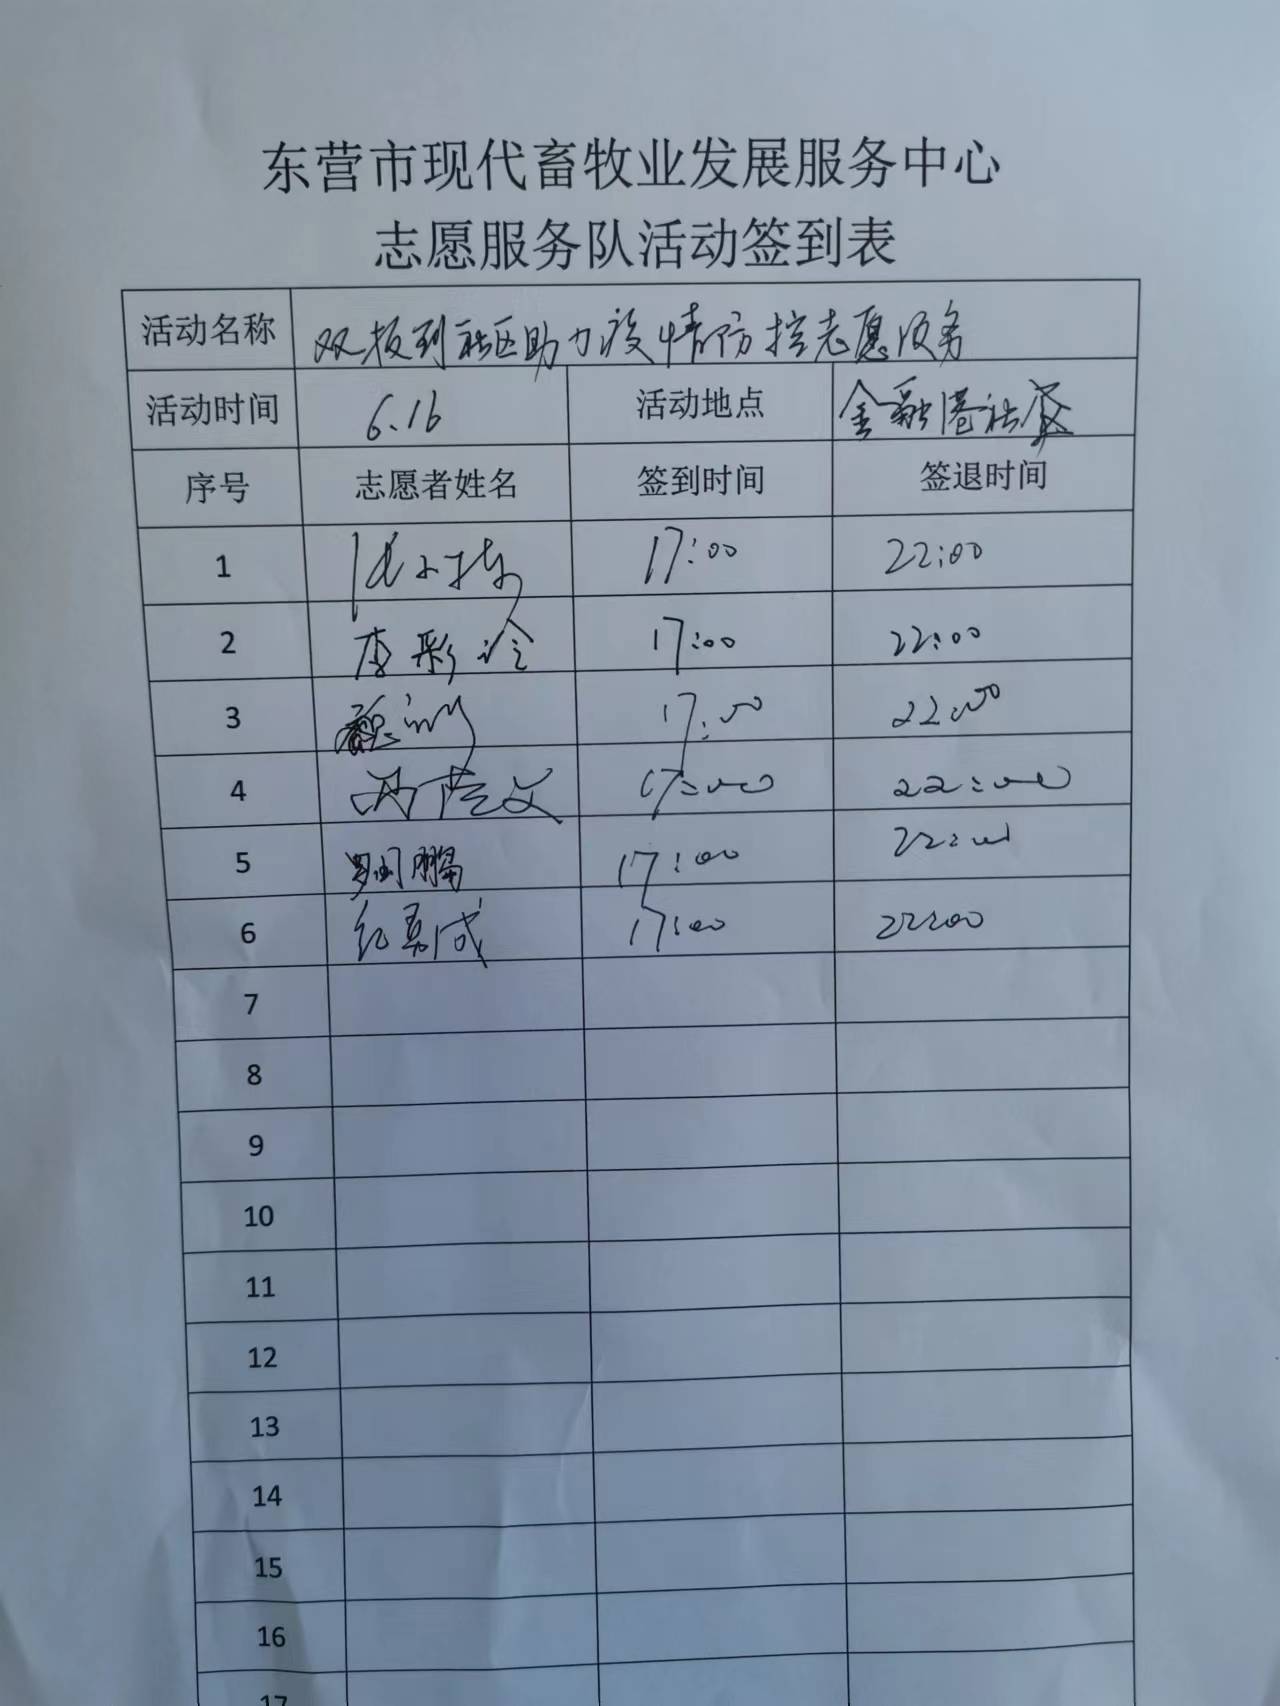 东营市现代畜牧业发展服务中心
志愿服务队活动签到表
活动名称 双报到社区助力疫情防控志愿服务
活动时间 6.16 活动地点 金融港社区
序号 志愿者姓名 签到时间 签退时间
1 17:00 22:00
2 李彩玲 17:00 22:00
3 17:00 22:00
4 17:00 22:00
5 17:00 22:00
6 17:00 22:00
7
8
9
10
11
12
13
14
15
16
17